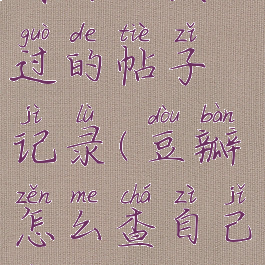 guò de tiè zǐ
过的帖子
jì lù dòu bàn
记录(豆瓣
zěn me chá zì jǐ
怎么查自己